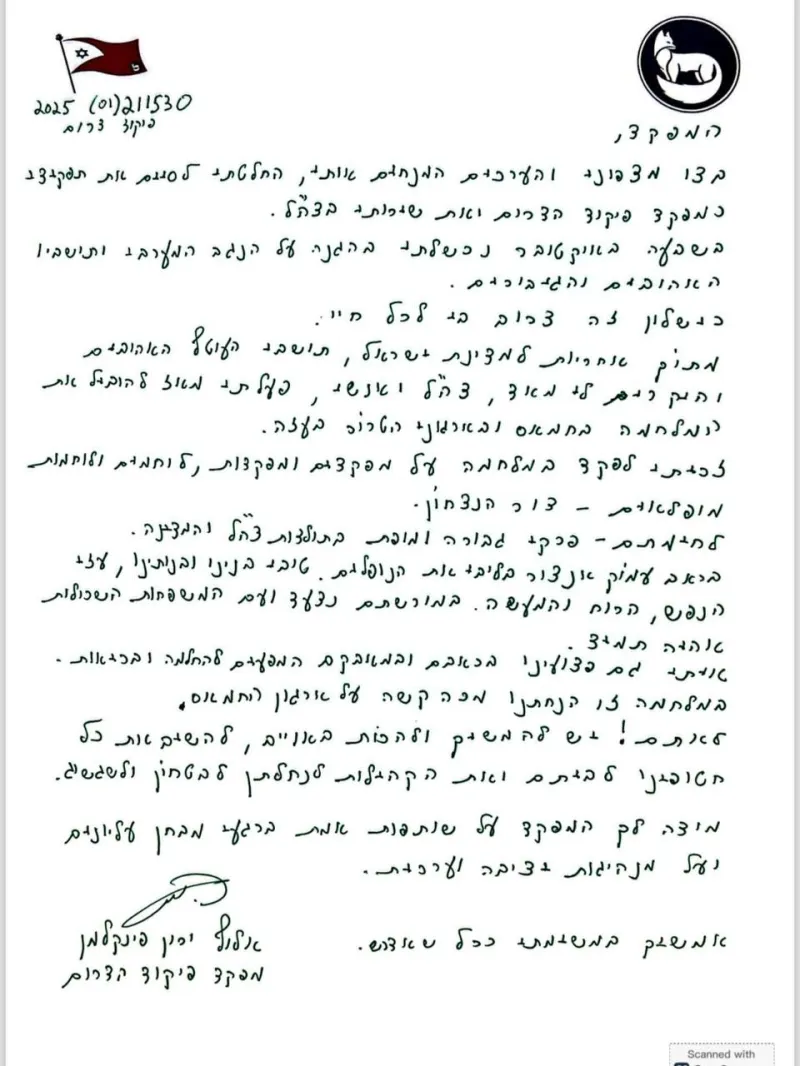 2025 (01) 211530
פיקוד דרום
המפקד,
בצו מצפוני והערכים המנחים אותי, החלטתי לסיים את תפקידי
כמפקד פיקוד הדרום ואת שירותי בצה"ל.
בשבעה באוקטובר נכשלתי בהגנה על הנגב המערבי ותושביו
האהובים והגיבורים.
כישלון זה צרוב בי לכל חיי.
מתוך אחריות למדינת ישראל, תושבי העוטף האהובים
והיקרים לי מאוד, צה"ל ואנשיו, פעלתי מאז להוביל את
המלחמה בחמאס ובארגוני הטרור בעזה.
זכיתי לפקד במלחמה על מפקדים ומפקדות, לוחמים ולוחמות
מופלאים – דור הנצחון.
לחימתם – פרקי גבורה ומופת בתולדות צה"ל והמדינה.
בכאב עמוק אנצור בליבי את הנופלים. טובי בנינו ובנותינו, עזי
הנפש, הרוח והמעשה. במורשתם נצעד ועם המשפחות השכולות
אהיה תמיד.
איתי גם פצועינו בכאבם ובמאבקם המפעים להחלמה ובבריאות.
במלחמה זו הנחתנו מכה קשה על ארגון החמאס.
לא תם! יש להמשיך ולהכות באויים, להשיב את כל
חטופינו לביתם ואת הקהילות לנחלתן לבטחון ולשגשוג.
מודה לך המפקד על שותפות אמת ברגעי מבחן עליונים
ועל מנהיגות יציבה וערכית.
אמשיך במשימתי ככל שאדרש.
אלוף ירון פינקלמן
מפקד פיקוד הדרום
Scanned with